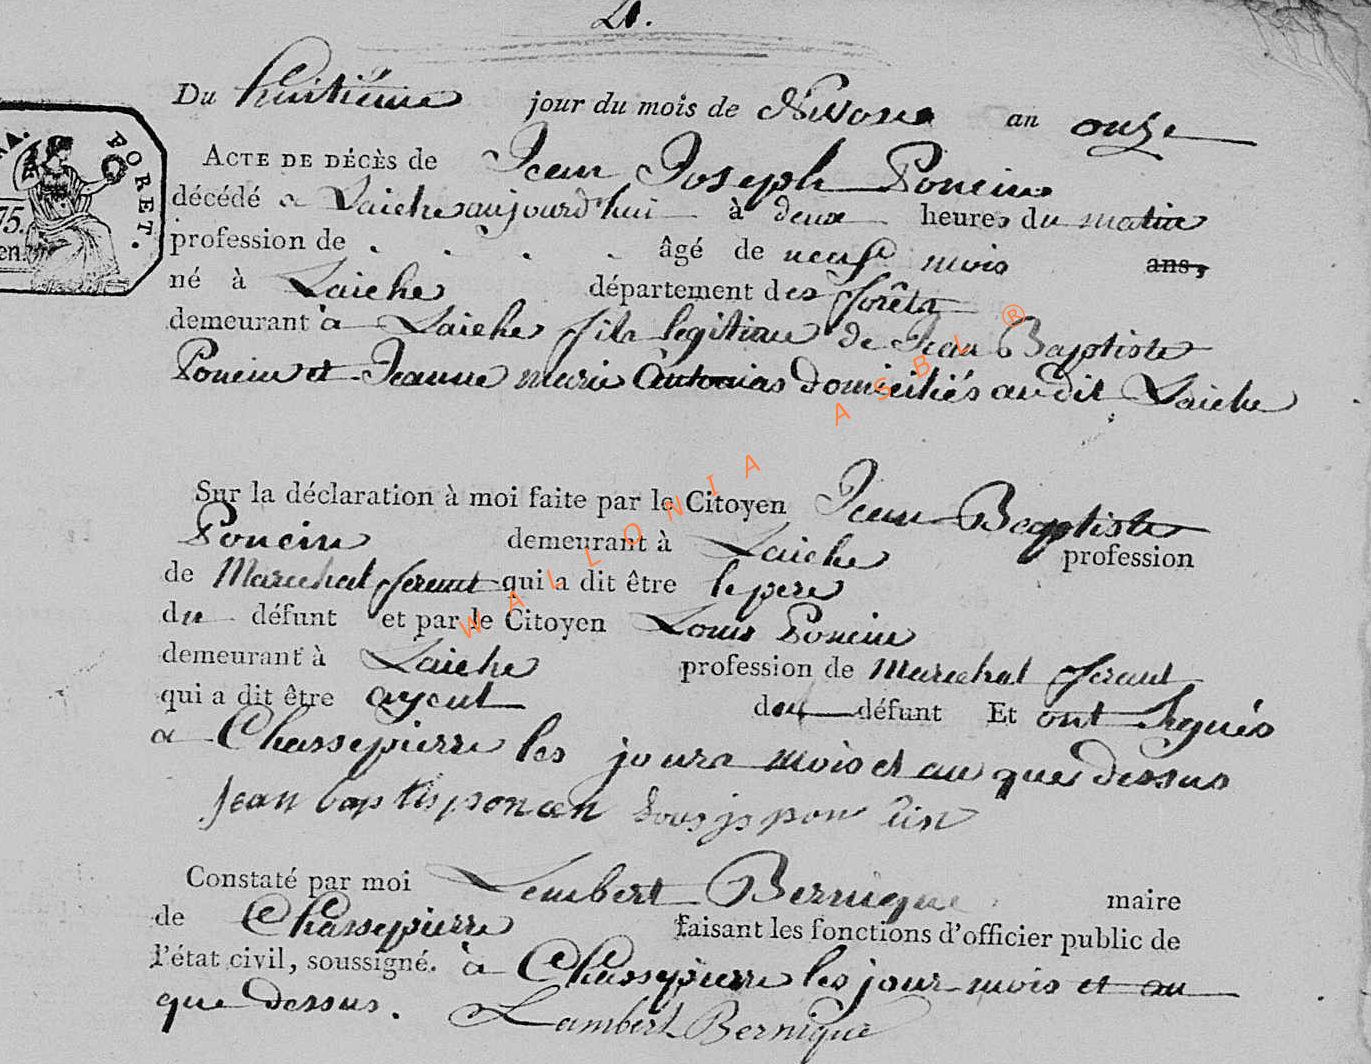 4.
Du huitiéme jour du mois de Nivose an onze
ACTE DE DÉCÈS de Jean Joseph Poncin
décédé a Laiche aujourd'hui à deux heures du matin
profession de . . . . âgé de neuf mois ans,
né à Laiche département des forêts
demeurant à Laiche fils legitime de Jean Baptiste
Poncin et Jeanne marie domiciliés audit Laiche
Sur la déclaration à moi faite par le Citoyen Jean Baptiste
Poncin demeurant à Laiche profession
de Marechal ferant qui a dit être le pere
du défunt et par le Citoyen Louis Poncin
demeurant à Laiche profession de Marechal ferant
qui a dit être ayeul du défunt Et ont signés
a Chassepierre les jours mois et an que dessus
Jean baptis poncin
Constaté par moi Lembert Bernique maire
de Chassepierre faisant les fonctions d'officier public de
l'état civil, soussigné. à Chassepierre les jour mois et an
que dessus. Lambert Bernique
FORET.
75.
en.
WALLONIA ASBL ®